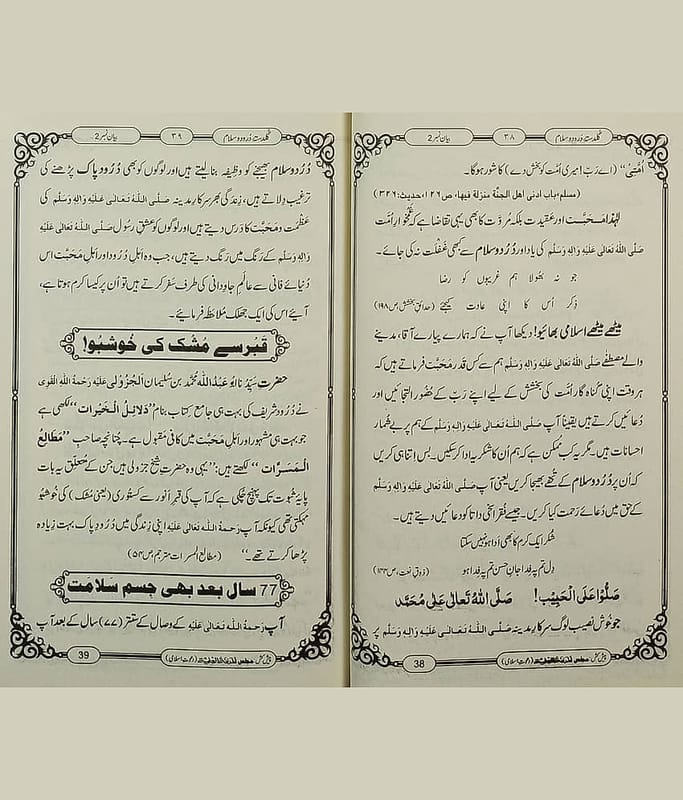 گلدستۂ دُرود و سلام ۳۸ بیان نمبر 2
اُمَّتِیْ“ (اے رَبّ! میری اُمّت کو بخش دے) کا شور ہوگا۔
(مسلم، باب ادنی اهل الجنّة منزلة فيها، ص۱۲۶، حدیث: ۳۲۶)
لہٰذا مَحَبَّت اور عقیدت بلکہ مُروَّت کا بھی یہی تقاضا ہے کہ غمخوارِ اُمّت
صَلَّی اللّٰہُ تَعَالٰی عَلَیْہِ وَاٰلِہٖ وَسَلَّم کی یاد اور دُرُود و سلام سے کبھی غَفلت نہ کی جائے۔
جو نہ بھولا ہم غریبوں کو رضا
ذِکر اُس کا اپنی عادت کیجئے (حدائقِ بخشش ص۱۹۸)
میٹھے میٹھے اسلامی بھائیو! دیکھا آپ نے کہ ہمارے پیارے آقا، مدینے
والے مصطفٰے صَلَّی اللّٰہُ تَعَالٰی عَلَیْہِ وَاٰلِہٖ وَسَلَّم ہم سے کس قدر مَحَبَّت فرماتے ہیں کہ
ہر وقت اپنی گُناہ گار اُمَّت کی بخشش کے لیے اپنے رَبّ کے حُضُور التجائیں اور
دُعائیں کرتے ہیں یقیناً آپ صَلَّی اللّٰہُ تَعَالٰی عَلَیْہِ وَاٰلِہٖ وَسَلَّم کے ہم پر بے شُمار
احسانات ہیں۔ مگر یہ کب مُمکن ہے کہ ہم اُن کا شکریہ ادا کرسکیں۔ بس اتنا ہی کریں
کہ اُن پر دُرُود و سلام کے تُحفے بھیجا کریں یعنی آپ صَلَّی اللّٰہُ تَعَالٰی عَلَیْہِ وَاٰلِہٖ وَسَلَّم
کے حق میں دُعائے رَحمت کیا کریں۔ جیسے فُقرا سخی داتا کو دعائیں دیتے ہیں۔
شُکر ایک کرم کا بھی اَدا ہو نہیں سکتا
دِل تم پہ فِدا جانِ حسن تم پہ فِدا ہو (ذوقِ نعت، ص۱۴۴)
صَلُّوْا عَلَی الْحَبِیْب! صَلَّی اللّٰہُ تَعَالٰی عَلٰی مُحَمَّد
جو خُوش نصیب لوگ سرکارِ مدینہ صَلَّی اللّٰہُ تَعَالٰی عَلَیْہِ وَاٰلِہٖ وَسَلَّم پر
38 پیش کش: مجلس (دعوتِ اسلامی)
گلدستۂ دُرود و سلام ۳۹ بیان نمبر 2
دُرُود و سلام بھیجنے کو وظیفہ بنا لیتے ہیں اور لوگوں کو بھی دُرُودِ پاک پڑھنے کی
ترغیب دِلاتے ہیں، زِندگی بھر سرکارِ مدینہ صَلَّی اللّٰہُ تَعَالٰی عَلَیْہِ وَاٰلِہٖ وَسَلَّم کی
عَظْمت و مَحَبَّت کا دَرس دیتے ہیں اور لوگوں کو عشقِ رسول صَلَّی اللّٰہُ تَعَالٰی عَلَیْہِ
وَاٰلِہٖ وَسَلَّم کے رَنگ میں رَنگ دیتے ہیں، جب وہ اہلِ دُرُود اور اہلِ مَحَبَّت اس
دُنیائے فانی سے عالَمِ جاوِدانی کی طرف سَفَر کرتے ہیں تو اُن پر کیسا کرم ہوتا ہے،
آئیے اس کی ایک جھلک مُلاحَظہ فرمائیے۔
قبر سے مُشک کی خُوشبُو!
حضرت سَیِّدُنا ابو عَبدُ اللّٰہ مُحمّد بن سُلیمان اَلجُزُولِی عَلَیْہِ رَحْمَۃُ اللّٰہِ الْقَوِی
نے دُرُود شریف کی بہت ہی جامِع کتاب بنام ”دَلَائِلُ الْخَیْرَات“ لکھی ہے
جو بہت ہی مشہور اور اہلِ مَحَبَّت میں کافی مقبول ہے۔ چُنانچہ صاحبِ ”مَطَالِعُ
الْمَسَرَّات“ لکھتے ہیں: ”یہی وہ حضرتِ شیخ جزولی ہیں جن کے مُتعلّق یہ بات
پایۂ ثُبوت تک پہنچ چُکی ہے کہ آپ کی قبرِ اَنور سے کَستُوری (یعنی مُشک) کی خُوشبُو
مَہکتی تھی کیونکہ آپ رَحْمَۃُ اللّٰہِ تَعَالٰی عَلَیْہ اپنی زِندگی میں دُرُودِ پاک بہت زِیادہ
پڑھا کرتے تھے۔“ (مطالع المسرات مترجم ص۵۴)
77 سال بعد بھی جسم سلامت
آپ رَحْمَۃُ اللّٰہِ تَعَالٰی عَلَیْہ کے وصال کے ستتر (۷۷) سال کے بعد آپ
39 پیش کش: مجلس (دعوتِ اسلامی)